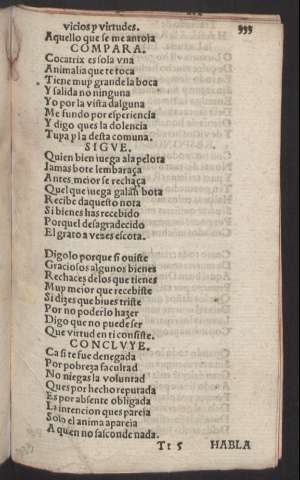 333
vicios y virtudes.
Aquello que se me antoia
COMPARA.
Cocatrix es sola vna
Animalia que te toca
Tiene muy grande la boca
Y salida no ninguna
Yo por la vista dalguna
Me fundo por esperiencia
Y digo ques la dolencia
Tupa y la desta comuna.
SIGVE.
Quien bien iuega a la pelota
Jamas bote lembaraça
Antes meior se rechaça
Quel que iuega galan bota
Recibe daquesto nota
Si bienes has recebido
Porquel desagradecido
El grato a vezes escota.
Digolo porque si ouiste
Graciosos algunos bienes
Rechaces de los que tienes
Muy meior que recebiste
Si dizes que biues triste
Por no poderlo hazer
Digo que no puede ser
Que virtud en ti consiste.
CONCLVYE.
Ca si te fue denegada
Por pobreza facultad
No niegas la voluntad
Ques por hecho reputada
Es por absente obligada
La intencion ques pareia
Solo el anima apareia
A quen no sasconde nada.
Tt 5 HABLA